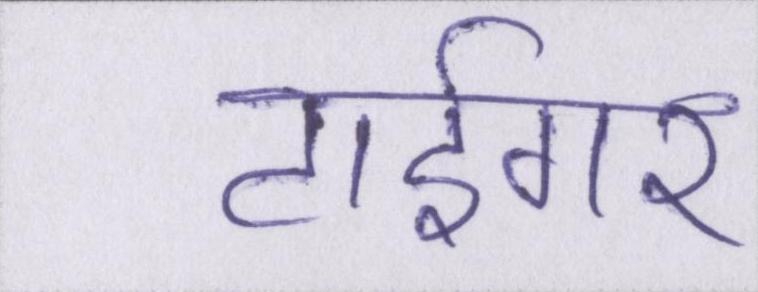 टाईगर